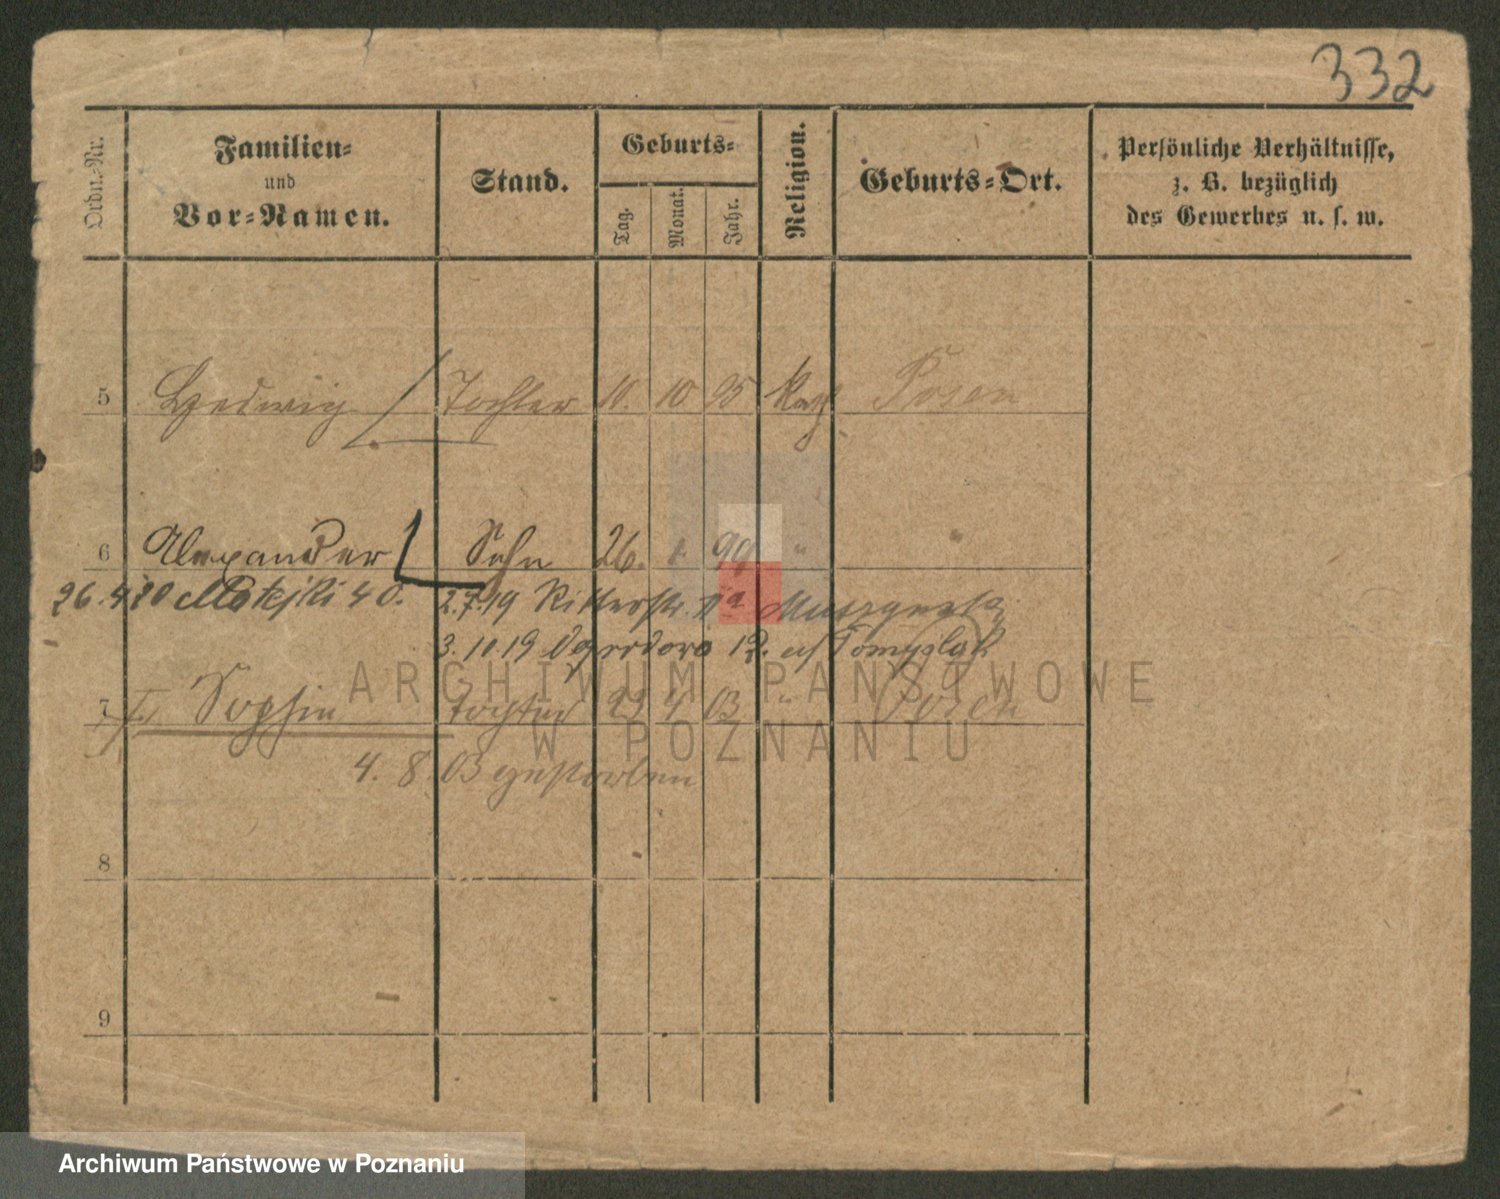 332
Ordn.-Nr.
Familien-
und
Vor-Namen.
Stand.
Geburts-
Tag.
Monat.
Jahr.
Religion.
Geburts-Ort.
Persönliche Verhältnisse,
z. B. bezüglich
des Gewerbes u. s. w.
5 Hedwig Tochter 10 95 Posen
6 Alexander Sohn 26. 99 " "
26.4 20 Matejki 40. 2.7.19 Ritterstr.
3.10.19 Ogrodowa 12.
7 Sophie Tochter 4 03 " Posen
4. 8. 03 gestorben
8
9
ARCHIWUM PAŃSTWOWE
W POZNANIU
Archiwum Państwowe w Poznaniu